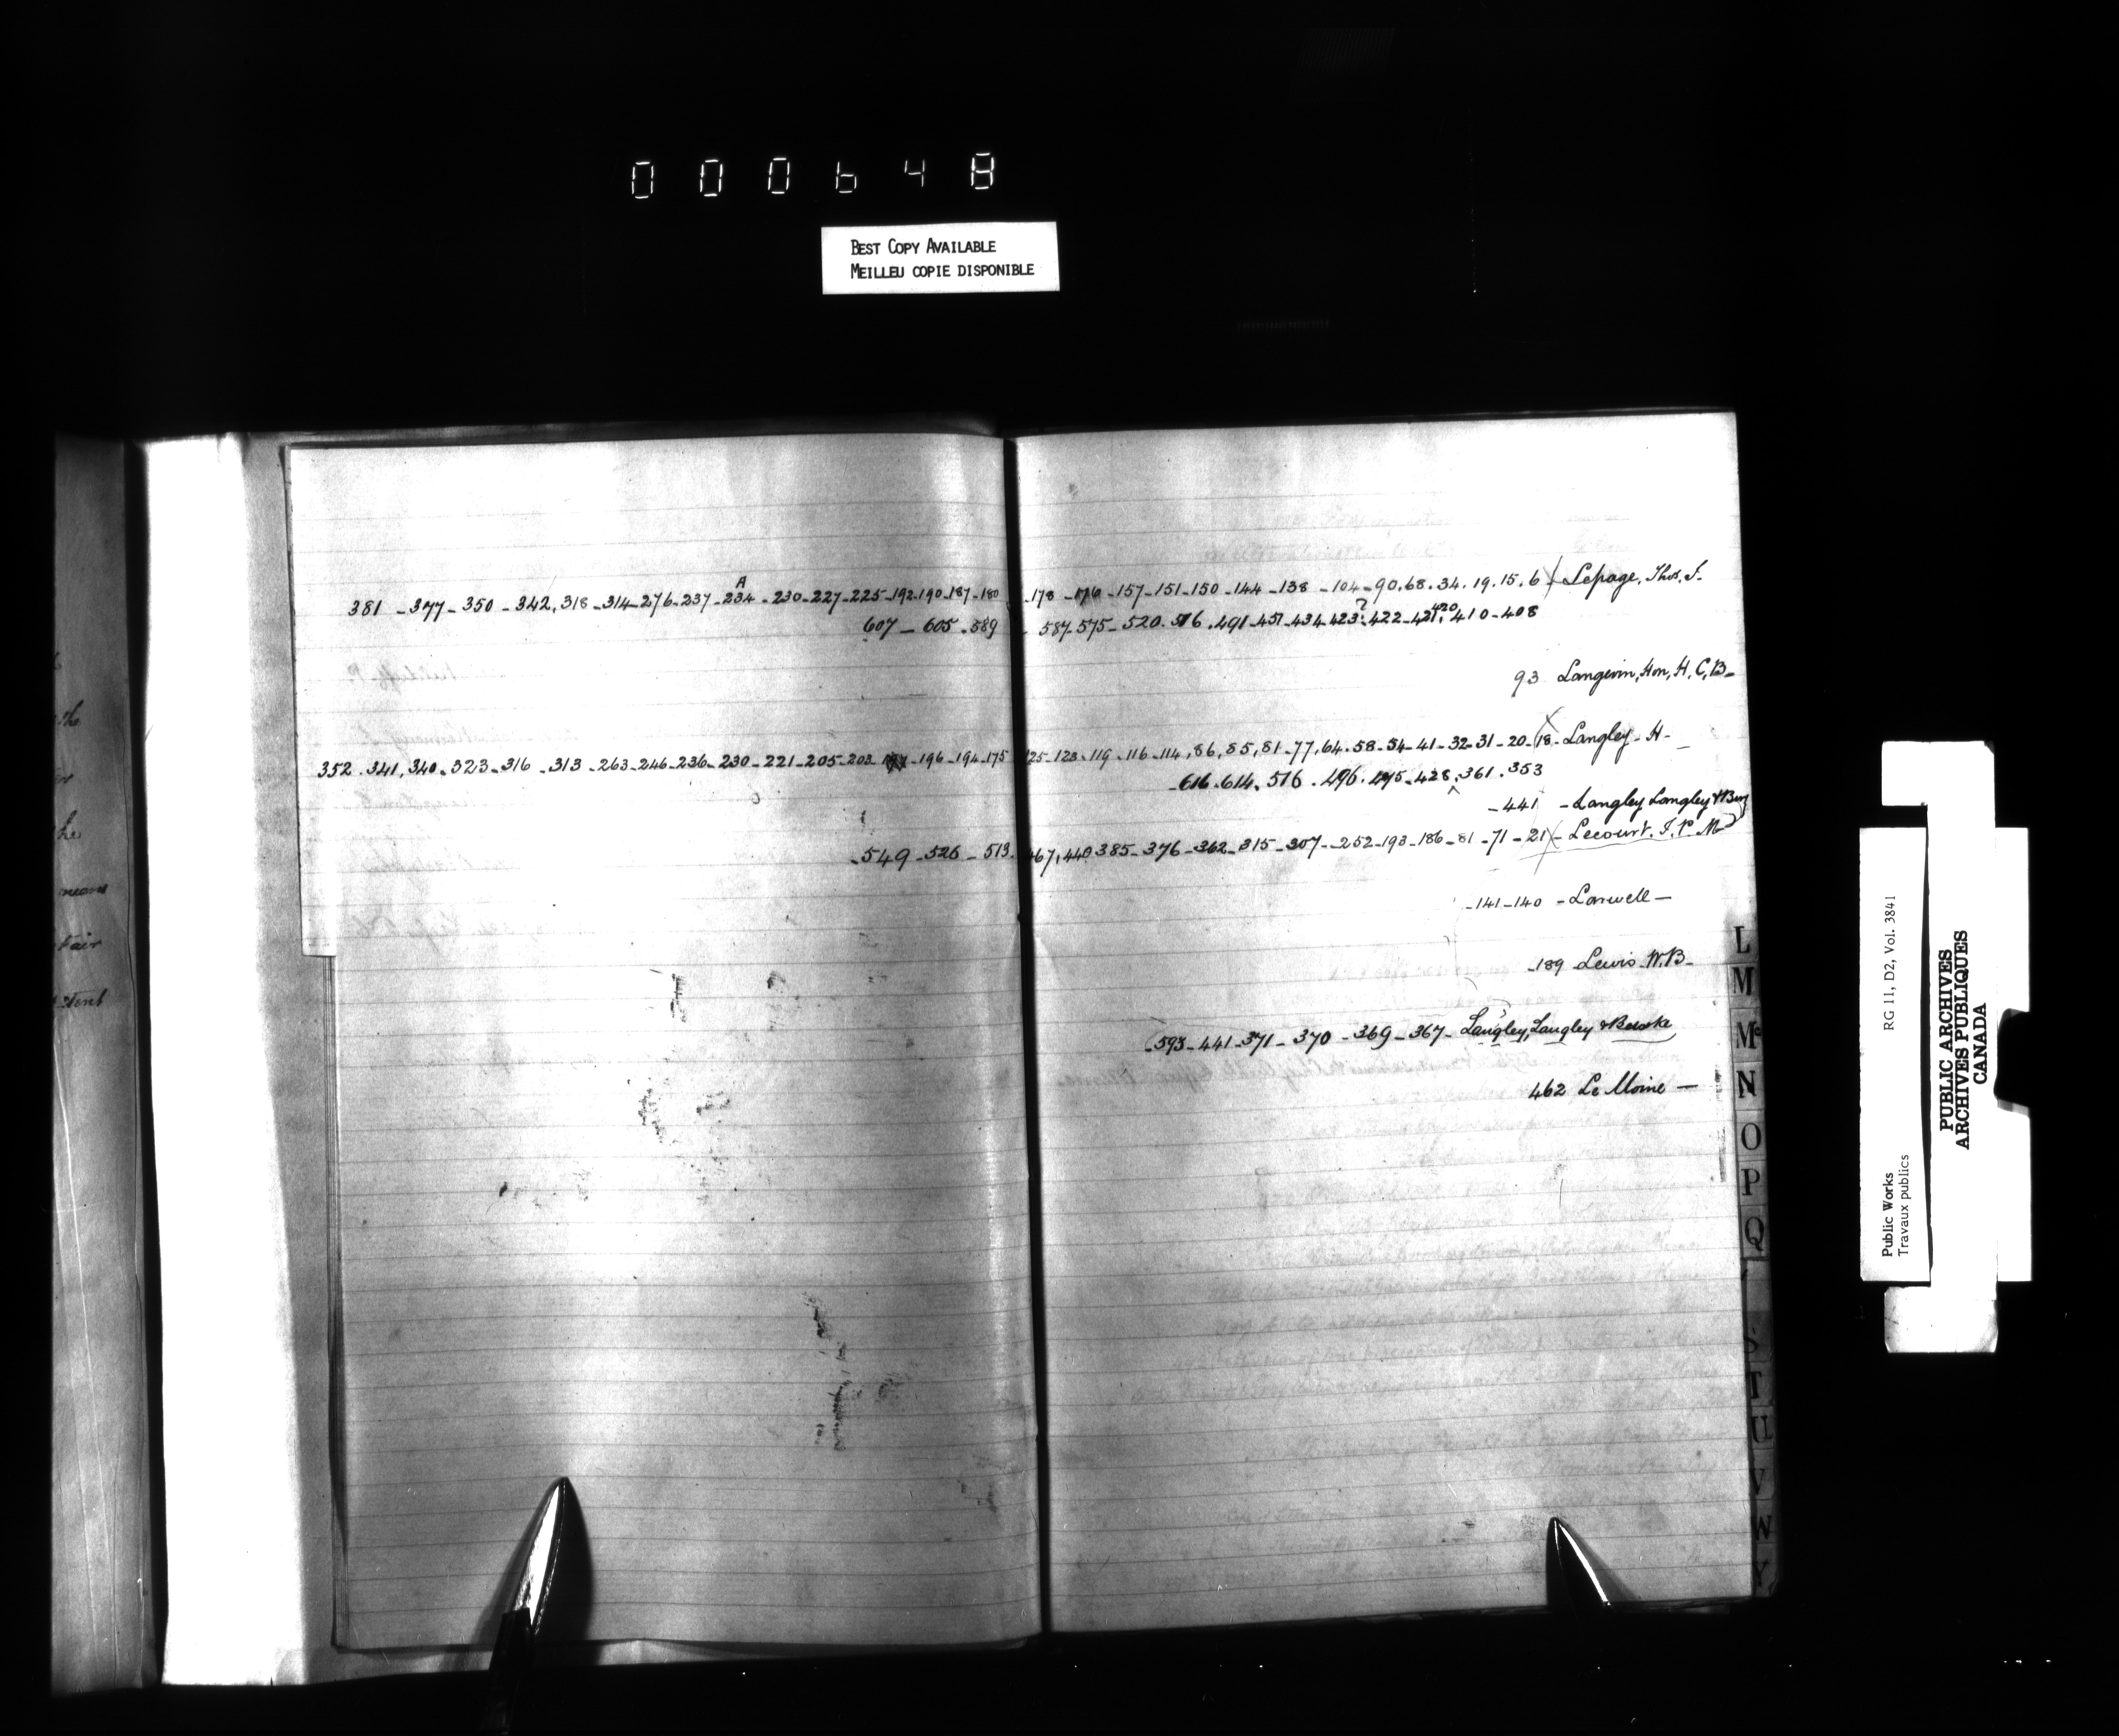 000648
BEST COPY AVAILABLE
MEILLEU COPIE DISPONIBLE
381 - 377 - 350 - 342, 318 - 314 - 276 - 237 - 234 A - 230 - 227 - 225 - 192 - 190 - 187 - 180 - 178 - 176 - 157 - 151 - 150 - 144 - 138 - 104 - 90. 68. 34. 19. 15. 6 Lepage, Thos. J.
607 - 605 - 589 - 587 - 575 - 520. 516. 491 - 457 - 434 - 423? - 422 - 421, 420, 410 - 408
93 Langevin, Hon, H. C, B -
352. 341, 340. 323 - 316 - 313 - 263 - 246 - 236 - 230 - 221 - 205 - 203 - 196 - 194 - 175 125 - 123. 119. 116 - 114, 86, 85, 81 - 77, 64. 58 - 54 - 41 - 32 - 31 - 20 - 18 - Langley - H -
616. 614. 516. 496. 495 - 428, 361. 353
- 441 - Langley Langley &
- 549 - 526 - 513. 467, 440. 385 - 376 - 362 - 315 - 307 - 252 - 193 - 186 - 81 - 71 - 21 - Lecourt. J. P. M
- 141 - 140 -
- 189 Lewis - W. B -
593 - 441 - 371 - 370 - 369 - 367 - Langley, Langley &
462 Le Moine -
L
M
Mc
N
O
P
Q
S
T
U
V
W
Y
the
he
means
fair
RG 11, D2, Vol. 3841
Public Works
Travaux publics
PUBLIC ARCHIVES
ARCHIVES PUBLIQUES
CANADA